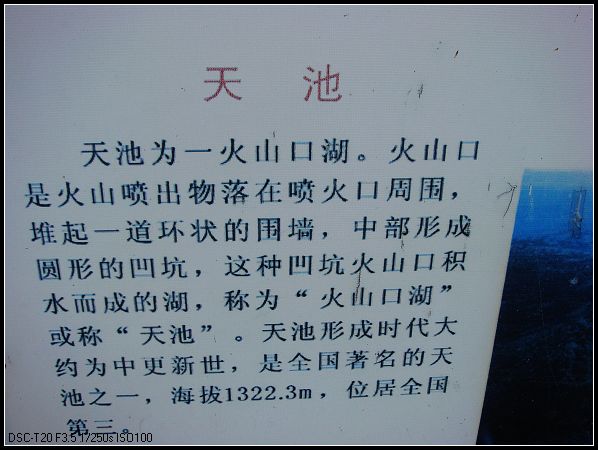 天 池
天池为一火山口湖。火山口
是火山喷出物落在喷火口周围，
堆起一道环状的围墙，中部形成
圆形的凹坑，这种凹坑火山口积
水而成的湖，称为“火山口湖”
或称“天池”。天池形成时代大
约为中更新世，是全国著名的天
池之一，海拔1322.3m，位居全国
第三。
DSC-T20 F3.5 1/250s ISO100